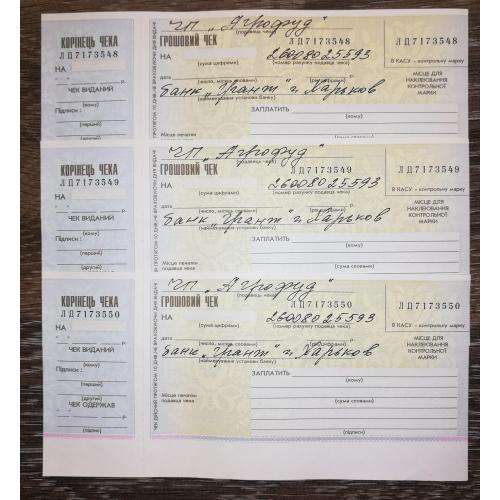 КОРІНЕЦЬ ЧЕКА
ЛД7173548
НА
р.
ЧЕК ВИДАНИЙ
(кому)
Підписи :
(перший)
(другий)
ЧП „Агрофуд"
(чекодавець)
ГРОШОВИЙ ЧЕК
ЛД7173548
ЛД7173548
НА
26008025593
(сума цифрами)
(номер рахунку подавця чека)
В КАСУ - контрольну марку
дата
(число, місяць словами)
р.
банк „Грант" г. Харьков
(найменування установи банку)
МІСЦЕ ДЛЯ
НАКЛЕЮВАННЯ
КОНТРОЛЬНОЇ
МАРКИ
ЗАПЛАТИТЬ
(кому)
Місце печатки
КОРІНЕЦЬ ЧЕКА
ЛД7173549
НА
р.
ЧЕК ВИДАНИЙ
(кому)
Підписи :
(перший)
(другий)
ЧП „Агрофуд"
ГРОШОВИЙ ЧЕК
ЛД7173549
ЛД7173549
НА
26008025593
(сума цифрами)
(номер рахунку подавця чека)
В КАСУ - контрольну марку
дата
(число, місяць словами)
р.
банк „Грант" г. Харьков
(найменування установи банку)
МІСЦЕ ДЛЯ
НАКЛЕЮВАННЯ
КОНТРОЛЬНОЇ
МАРКИ
ЗАПЛАТИТЬ
(кому)
Місце печатки
подавця чека
(сума словами)
КОРІНЕЦЬ ЧЕКА
ЛД7173550
НА
р.
ЧЕК ВИДАНИЙ
(кому)
Підписи :
(перший)
(другий)
ЧЕК ОДЕРЖАВ
р.
(підпис)
ЧП „Агрофуд"
ГРОШОВИЙ ЧЕК
ЛД7173550
ЛД7173550
НА
26008025593
(сума цифрами)
(номер рахунку подавця чека)
В КАСУ - контрольну марку
дата
(число, місяць словами)
р.
банк „Грант" г. Харьков
(найменування установи банку)
МІСЦЕ ДЛЯ
НАКЛЕЮВАННЯ
КОНТРОЛЬНОЇ
МАРКИ
ЗАПЛАТИТЬ
(кому)
Місце печатки
подавця чека
(сума словами)
(підписи)
ЧЕК ДІЙСНИЙ ПРОТЯГОМ 10 ДНІВ, НЕ ВРАХОВУЮЧИ ДНЯ ВИДАЧІ